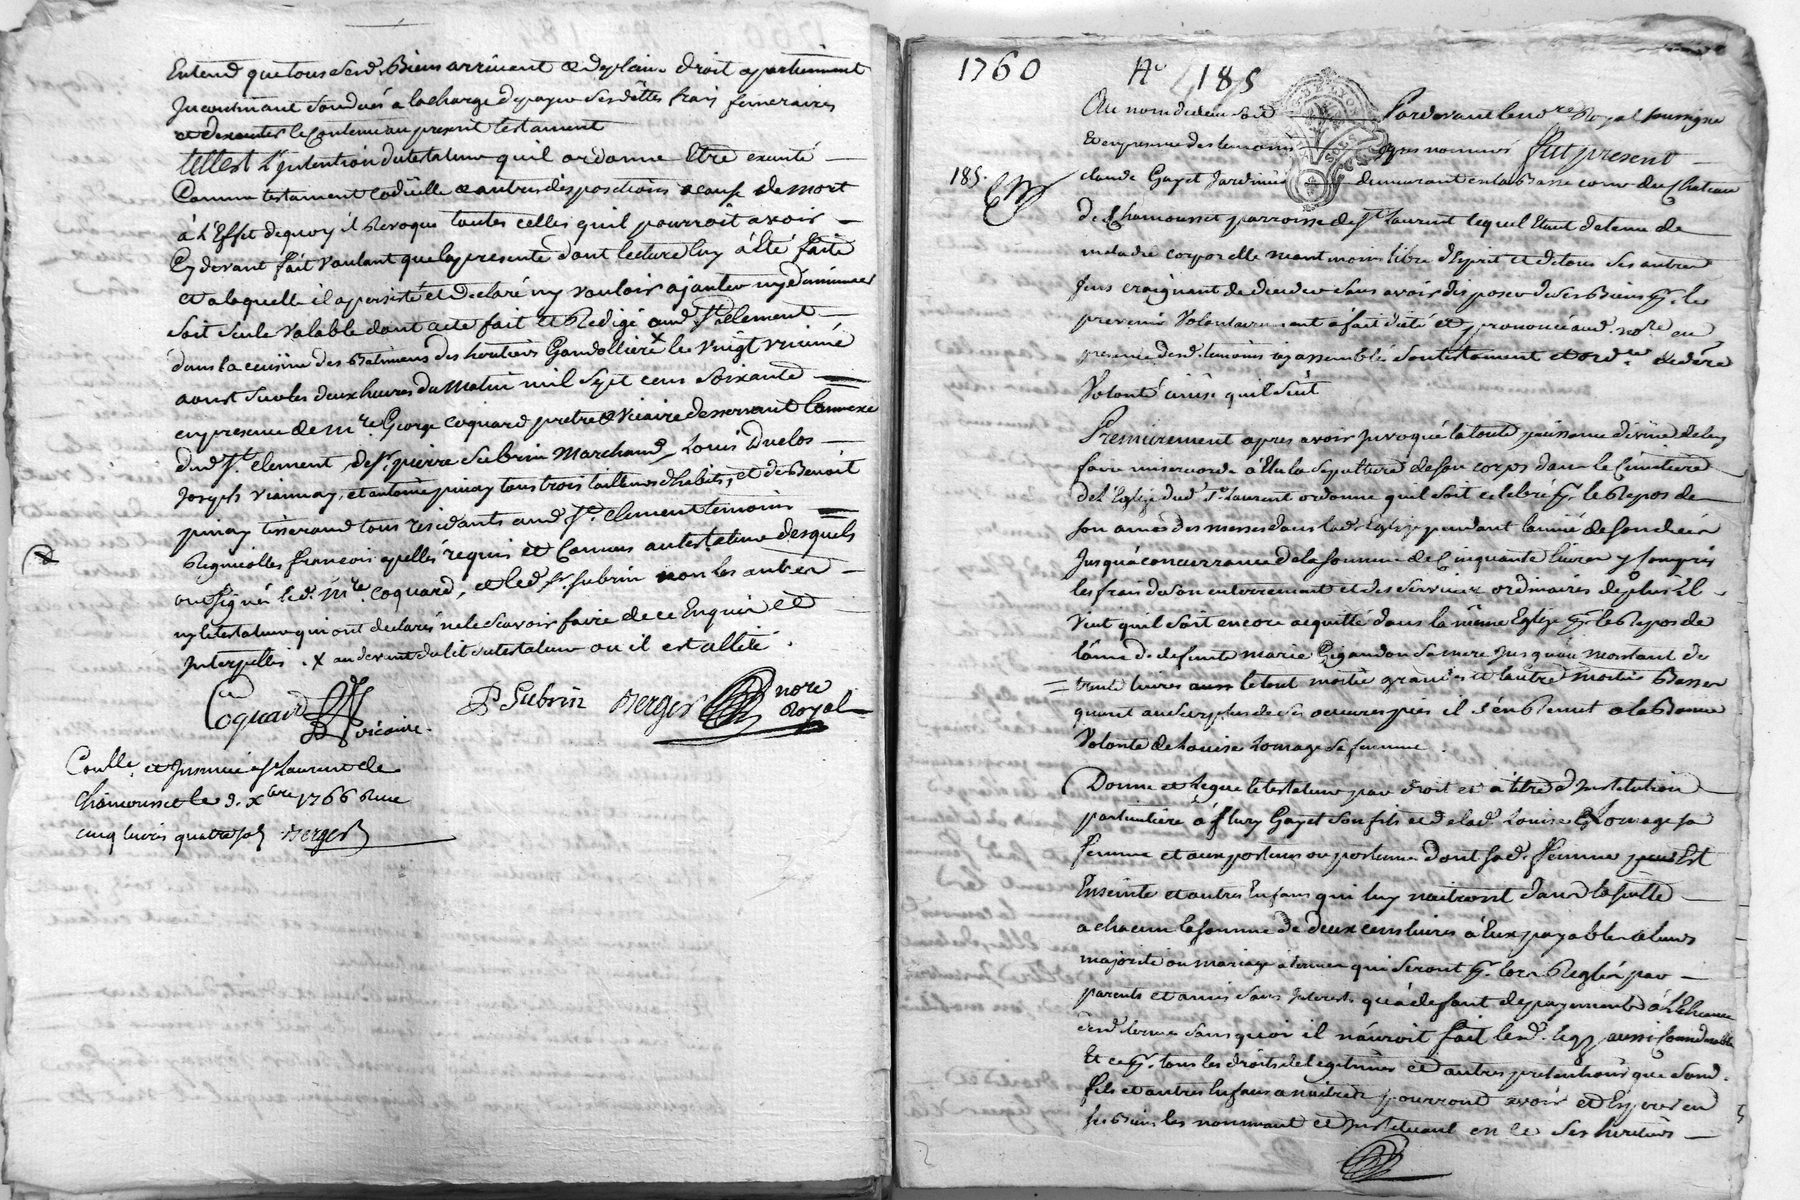 Entend que tous sesd. Biens arrivent & de plain droit apartiennent
Incontinant son decés a la charge de payer ses dettes frais funeraires
et d'executer le Contenu au present testament
tElle est L'Intention du testateur qu'il ordonne Etre executé
Comme testament codicille & autres dispositions a cause de mort
à L'Effet de quoy il Revoque toutes celles qu'il pourroit avoir
Cy devant fait voulant que la presente dont lecture luy à Eté faite
et a laquelle il a persisté et declaré ny vouloir ajouter ny diminuer
soit seule valable dont acte fait et Redigé aud. St. Clement
dans la cuisine des Batimens des heritiers Gandolliere x le vingt unieme
aoust sur les deux heures du Matin mil sept cens soixante
en presence de mre. George Coquard pretre & vicaire desservant l'annexe
dud. St. Clement, de sr. pierre Subrin Marchand, Louis Duclos
Joseph viannay, et antoine pinay tous trois tailleurs d'habits, et de Benoit
pinay tisserand tous residants aud. St. Clement temoins
Regnicolles francois apellés requis et Connus au testateur desquels
ont signé led. mre. Coquard, et led. sr. subrin non les autres
ny le testateur qui ont declarés ne le scavoir faire de ce Enquis et
Interpellés . x au devant du lit du testateur ou il est allité .
Coquard vicaire. P Subrin Berger nore Royal
Conllé. et Insinué a St Laurent de
chamousset le 9. Xbre 1766 Reçu
cinq livres quatre sols Berger
1760 No 185
185.
Au nom de dieu soit Pardevant le nore Royal soussigné
Et en presence des temoins apres nommés fut present
claude Gayet Jardinier demeurant en la Basse cour du Chateau
de Chamousset parroisse de St Laurent lequel Etant detenu de
maladie corporelle neantmoins libre d'Esprit et de tous ses autres
sens craignant de deceder sans avoir disposer de ses Biens pr. le
prevenir Volontairement à fait dicté et prononcé aud. nore en
presence desd. temoins icy assemblés son testament et ordre. de dere
Volonté ainsi qu'il suit
Premierement apres avoir Invoqué la toute puissance divine de luy
faire misericorde à Elu la sepulture de son corps dans le Cimetiere
de L'Eglise dud. St. Laurent ordonne qu'il soit celebré pr. le Repos de
son ame des messes dans lad. Eglise pendant l'année de son decés
Jusqu'a concurrance de la somme de Cinquante livres y Compris
les frais de son enterrement et des services ordinaires de plus Il
Veut qu'il soit encore acquitté dans la même Eglise pr. le Repos de
l'ame de defunte marie Gigandon sa mere Jusqu'au montant de
trente livres aussi le tout moitié grandes et l'autre moitié Basses
quant au surplus de ses oeuvres pies il s'en Remet a la Bonne
Volonté de Louise Lomage sa femme .
Donne et Legue le testateur par droit et a titre d'Institution
particuliere à fleury Gayet son fils et de lad. Louise Lomage sa
femme et aux posteurs ou postumes dont sad. femme peut Est
Enseinte et autres Enfans qui luy naitront dans la suitte
a chacun la somme de deux cens livres à Eux payable a leurs
majorité ou mariage a termes qui seront pr. lors Reglés par
parents et amis sans Interest. qu'à defaut de payement à L'Echeance
desd. termes sans quoi il n'auroit fait lesd. legs aussi considerable
Et ce pr. tous les droits de legitimes et autres pretentions que sond.
fils et autres Enfans a naitre pourront avoir et Esperer en
ses Biens les nommant et Instituant en ce ses heritiers